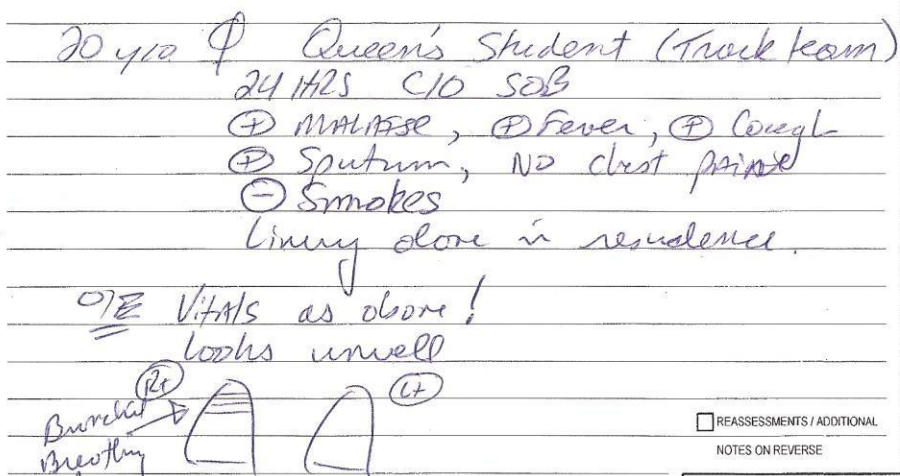 20 y/o ♀ Queen's Student (Track team)
24 HRS C/O SOB
⊕ MALAISE, ⊕ Fever, ⊕ Cough
⊕ Sputum, NO chest pain
⊖ Smokes
Living alone in residence.
O/E Vitals as above!
Looks unwell
Rt Lt
Bronchial
Breathing
REASSESSMENTS / ADDITIONAL
NOTES ON REVERSE